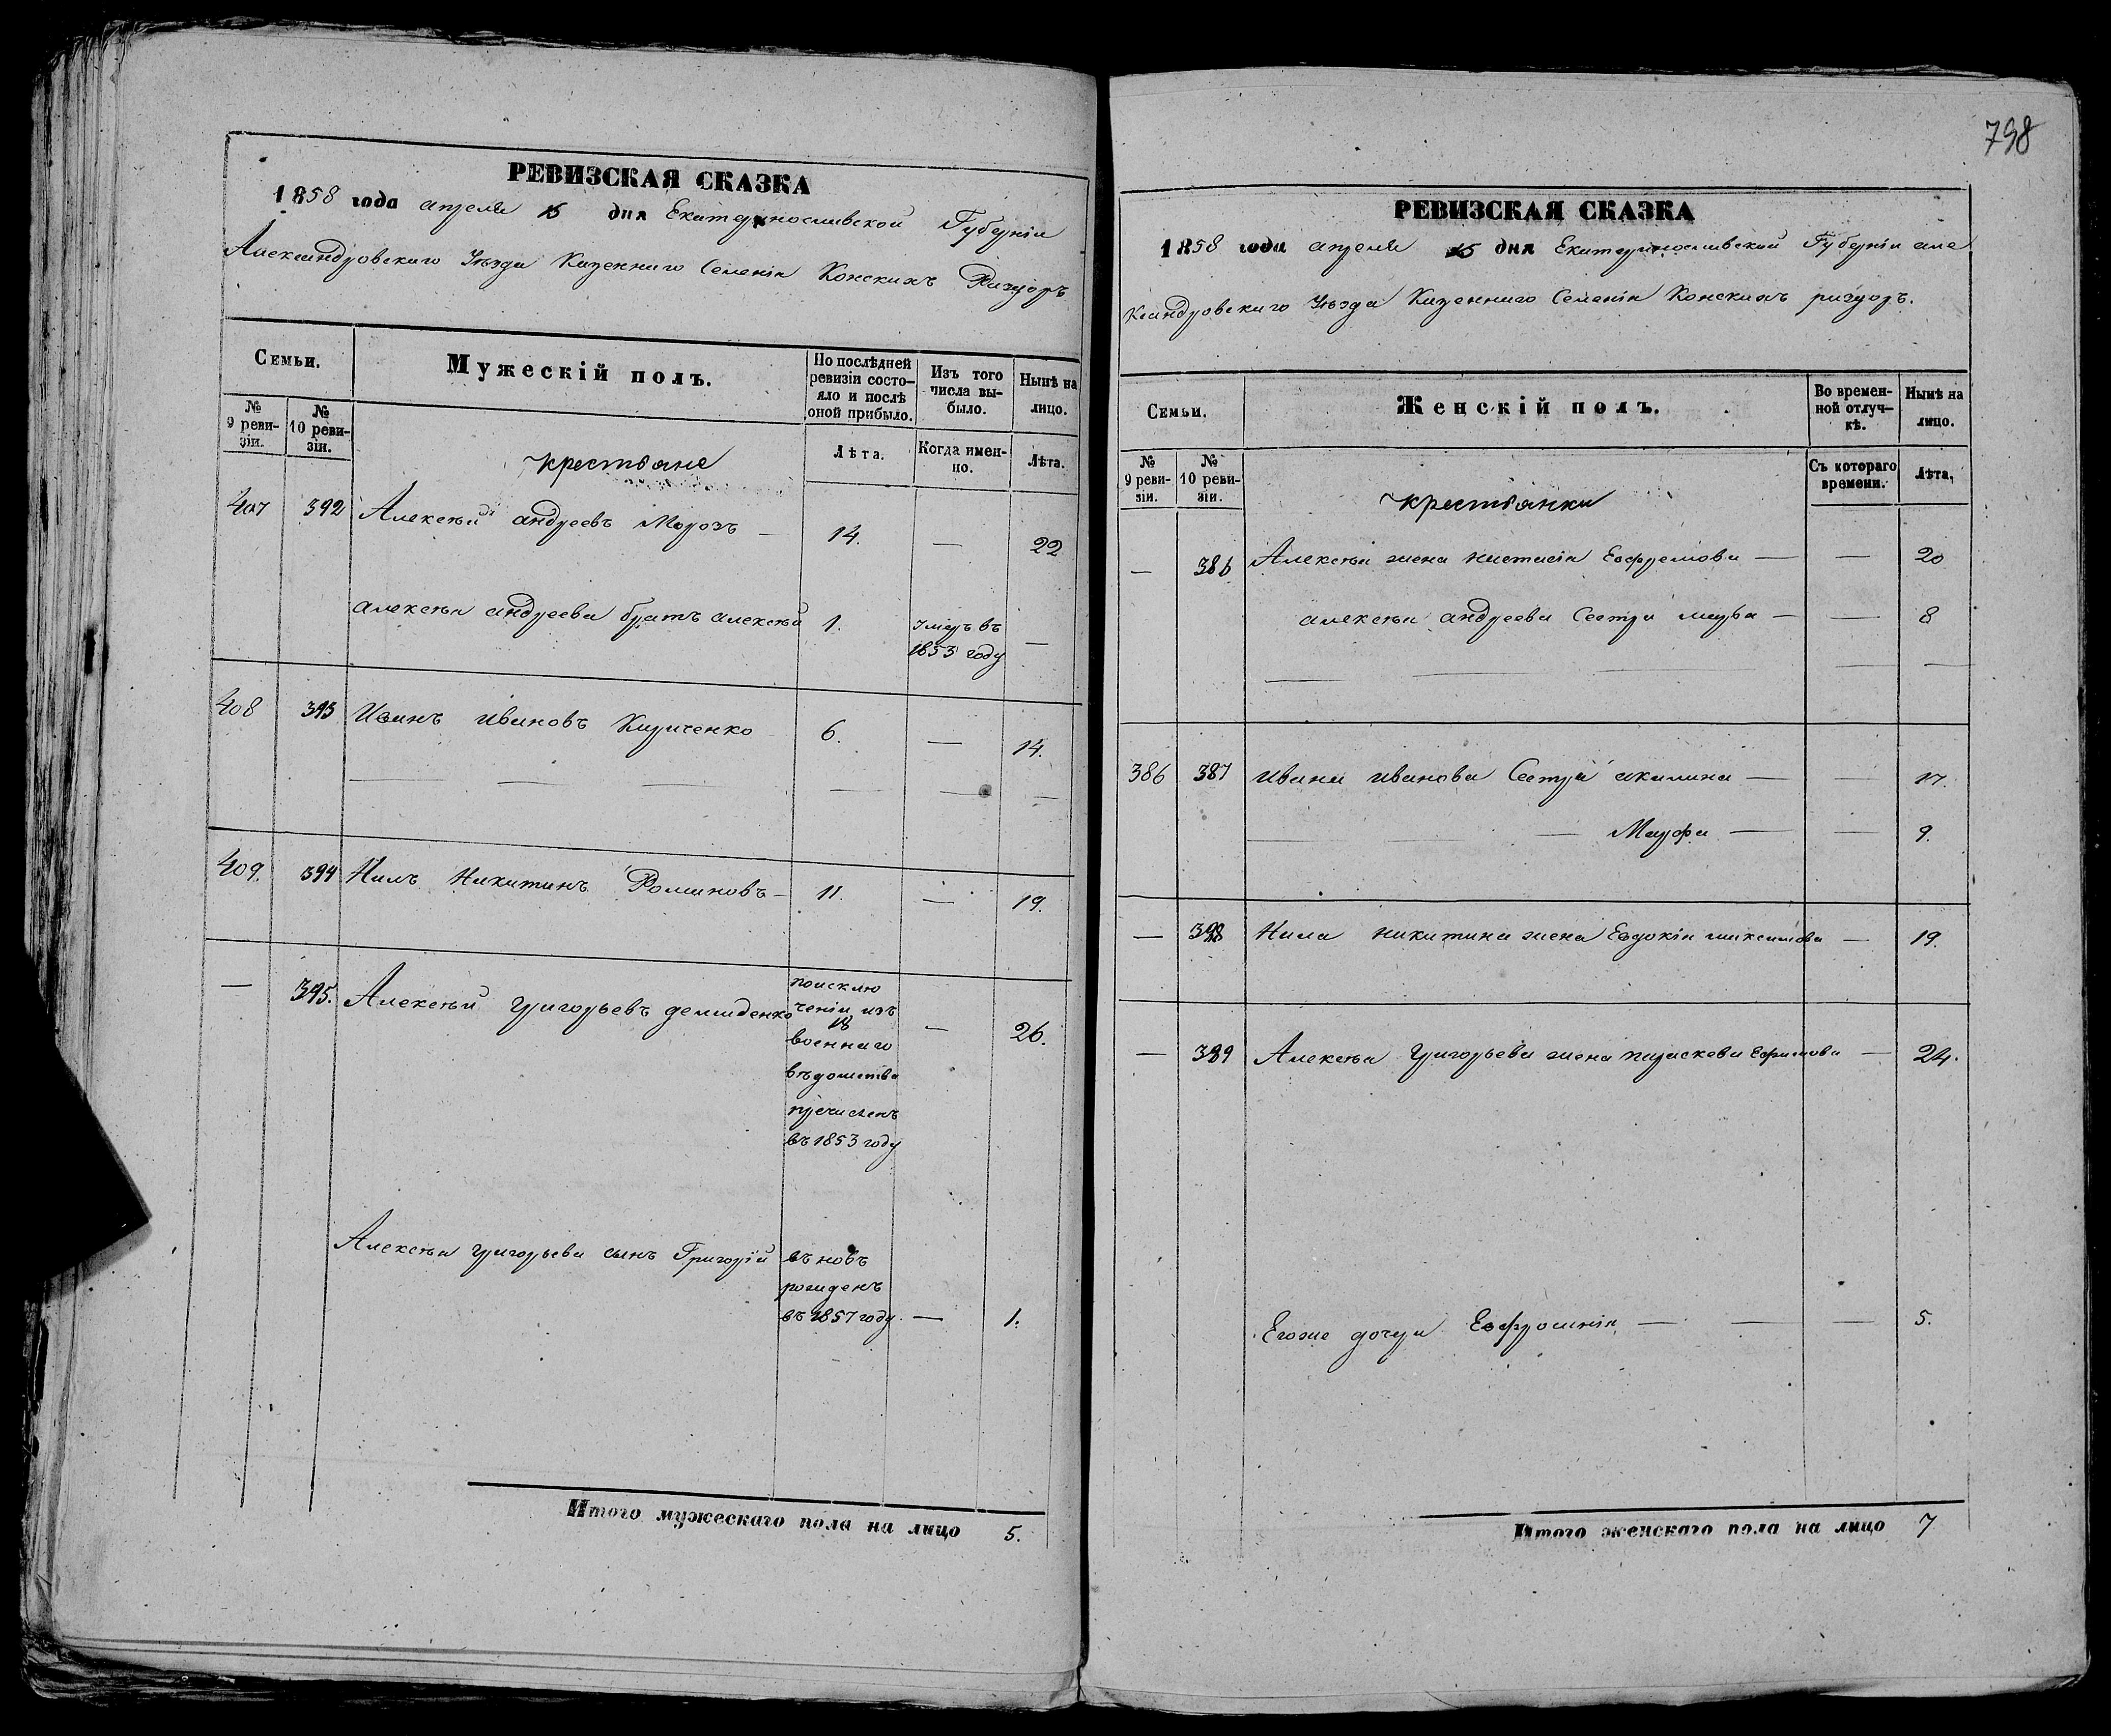 РЕВИЗСКАЯ СКАЗКА
1858 года апреля 15 дня Екатеринославской Губерніи
Александровскаго Уѣзда Казеннаго Селенія Конскихъ Раздоръ
Семьи.
Мужескій полъ.
По послѣдней ревизіи состо-
яло и послѣ оной прибыло.
Изъ того числа вы-
было.
Нынѣ на лицо.
№ 9 реви-
зіи.
№ 10 реви-
зіи.
Лѣта.
Когда имен-
но.
Лѣта.
крестьяне
407 392 Алексѣй андреевъ Морозъ — 14. — 22
алексѣя андреева братъ алексѣй 1. умеръ въ —
1853 году
408 393 Иванъ ивановъ Кириченко 6. — 14.
409. 394 Нилъ Никитинъ Романовъ — 11. — 19.
— 395. Алексѣй григорьевъ демиденко — 26.
поисклю
ченіи изъ
18
военнаго
вѣдомства
причисленъ
въ 1853 году
Алексѣя григорьева сынъ Григорій въ новъ
рожденъ
въ 1857 году. — 1.
Итого мужескаго пола на лицо 5.
798
РЕВИЗСКАЯ СКАЗКА
1858 года апреля 15 дня Екатеринославской Губерніи але
ксандровскаго Уѣзда Казеннаго Селенія Конскихъ раздоръ.
Семьи.
Женскій полъ.
Во времен-
ной отлуч-
кѣ.
Нынѣ на лицо.
№ 9 реви-
зіи.
№ 10 реви-
зіи.
Съ котораго времени.
Лѣта.
крестьянки
— 386 Алексѣя жена настасія Евфремова — — 20
алексѣя андреева Сестра мавра — — 8
386 387 ивана иванова Сестра акилина — — 17.
— Марфа — — 9.
— 388 Нила никитина жена Евдокія максимова — 19.
— 389 Алексѣя григорьева жена параскева Ефимова — 24.
Егоже дочери Евфросинія — — — 5.
Итого женскаго пола на лицо 7